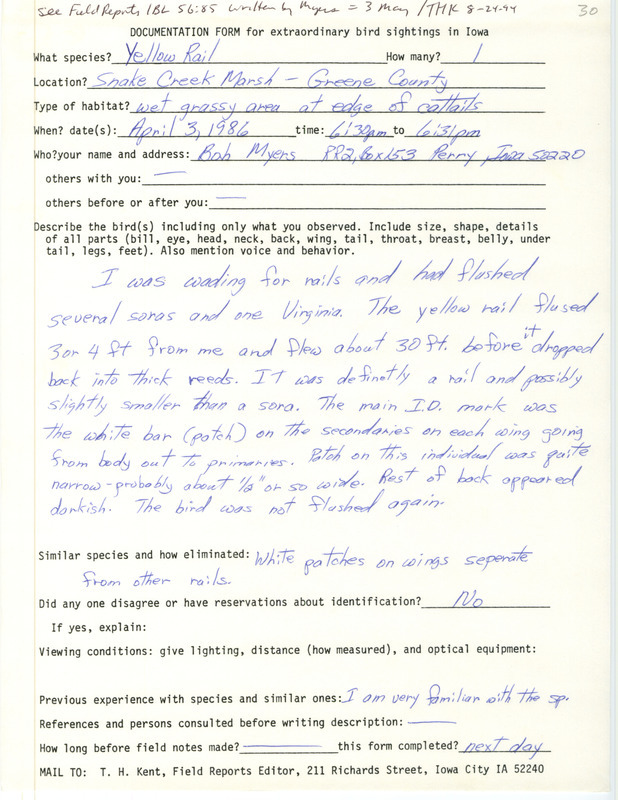 See Field Reports IBL 56:85 written by Myers = 3 May /THK 8-24-94
30
DOCUMENTATION FORM for extraordinary bird sightings in Iowa
What species? Yellow Rail How many? 1
Location? Snake Creek Marsh - Greene County
Type of habitat? wet grassy area at edge of cattails
When? date(s): April 3, 1986 time: 6:30pm to 6:31pm
Who?your name and address: Bob Myers RR2, Box 153 Perry, Iowa 50220
others with you: —
others before or after you: —
Describe the bird(s) including only what you observed. Include size, shape, details
of all parts (bill, eye, head, neck, back, wing, tail, throat, breast, belly, under
tail, legs, feet). Also mention voice and behavior.
I was wading for rails and had flushed
several soras and one Virginia. The yellow rail flused
3 or 4 ft from me and flew about 30 ft. before it dropped
back into thick reeds. IT was definetly a rail and possibly
slightly smaller than a sora. The main I.D. mark was
the white bar (patch) on the secondaries on each wing going
from body out to primaries. Patch on this individual was quite
narrow - probably about 1/2" or so wide. Rest of back appeared
darkish. The bird was not flushed again.
Similar species and how eliminated: White patches on wings seperate
from other rails.
Did any one disagree or have reservations about identification? No
If yes, explain:
Viewing conditions: give lighting, distance (how measured), and optical equipment:
Previous experience with species and similar ones: I am very familiar with the sp.
References and persons consulted before writing description: —
How long before field notes made? — this form completed? next day
MAIL TO: T. H. Kent, Field Reports Editor, 211 Richards Street, Iowa City IA 52240